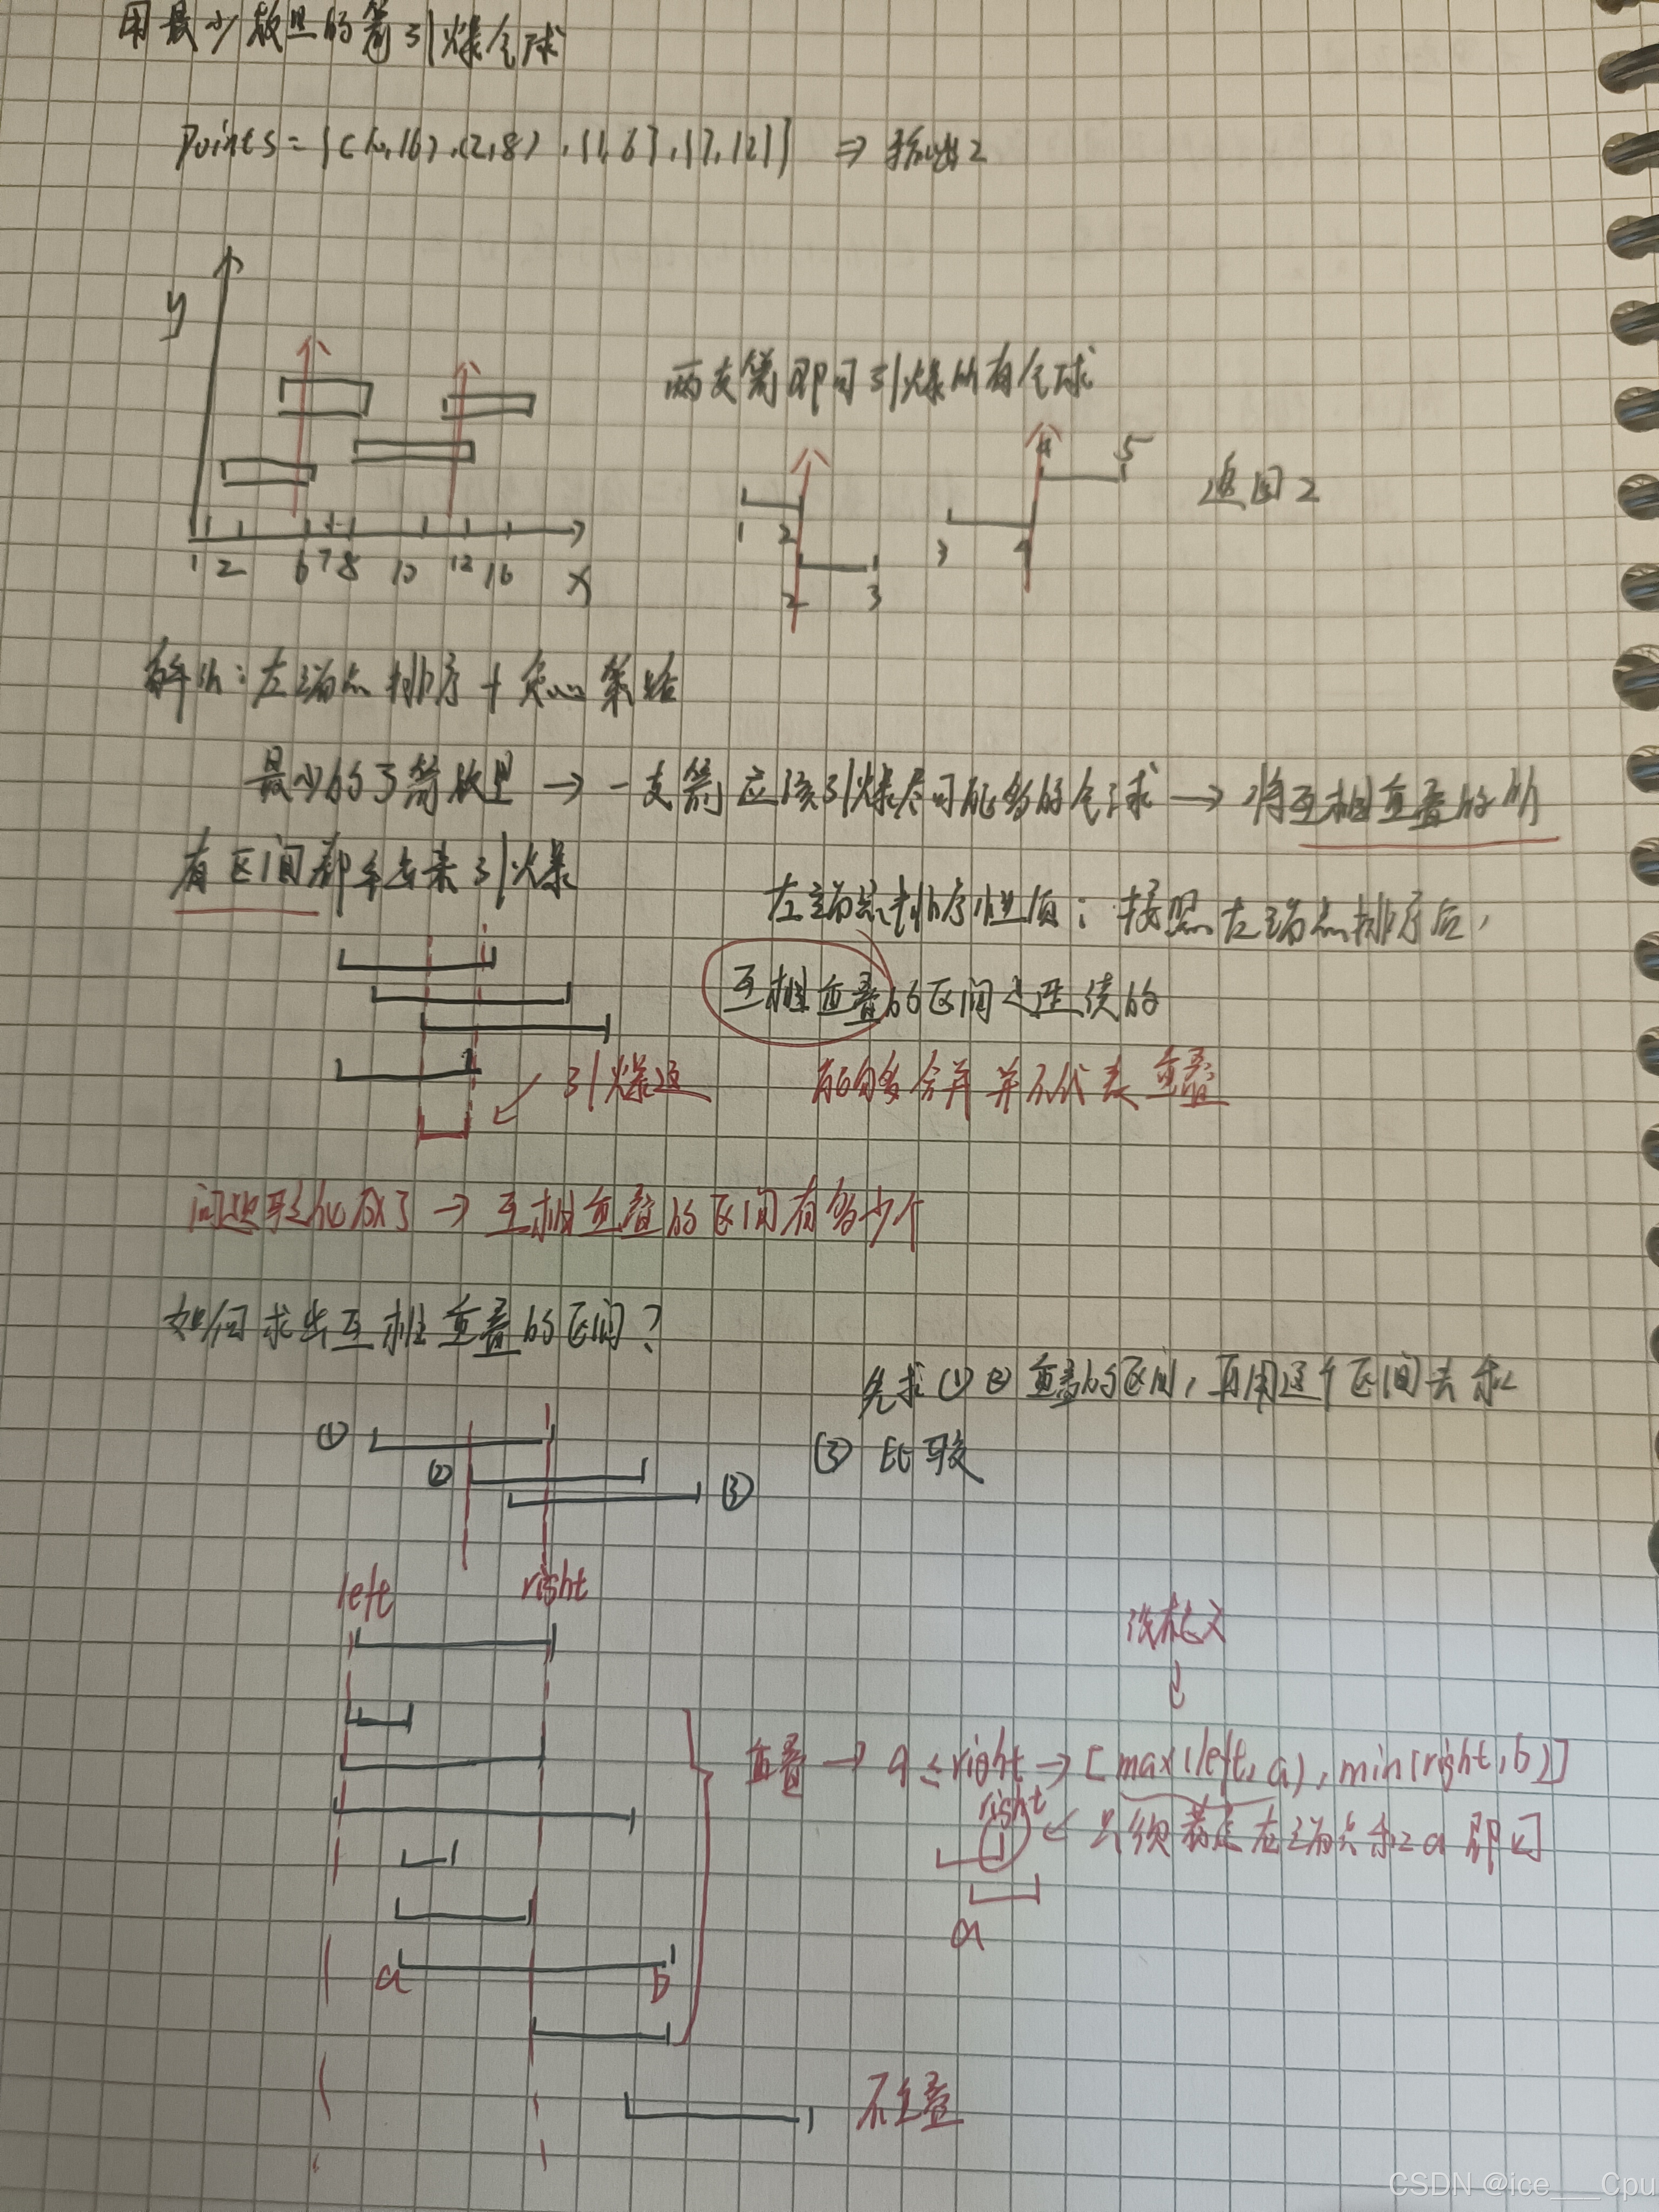 用最少数量的箭引爆气球
points = [(10,16),(2,8),[1,6],[7,12]] ⇒ 输出2
y
1 2 6 7 8 10 12 16 x
两支箭即可引爆所有气球
1 2
2 3
3 4
4 5
返回2
解法：左端点排序 + 贪心策略
最少的弓箭数量 → 一支箭应该引爆尽可能多的气球 → 将互相重叠的所
有区间都拿出来引爆
左端点排序性质：按照左端点排序后，
互相重叠的区间是连续的
引爆这
能够合并并不代表重叠
问题转化成了 → 互相重叠的区间有多少个
如何求出互相重叠的区间？
先求①②重叠的区间，再用这个区间去和
③比较
① ② ③
left right
没有意义
重叠 → a ≤ right → [max(left,a), min(right,b)]
right
只须考虑左端点和a即可
a
a b
不重叠
CSDN @ice___Cpu